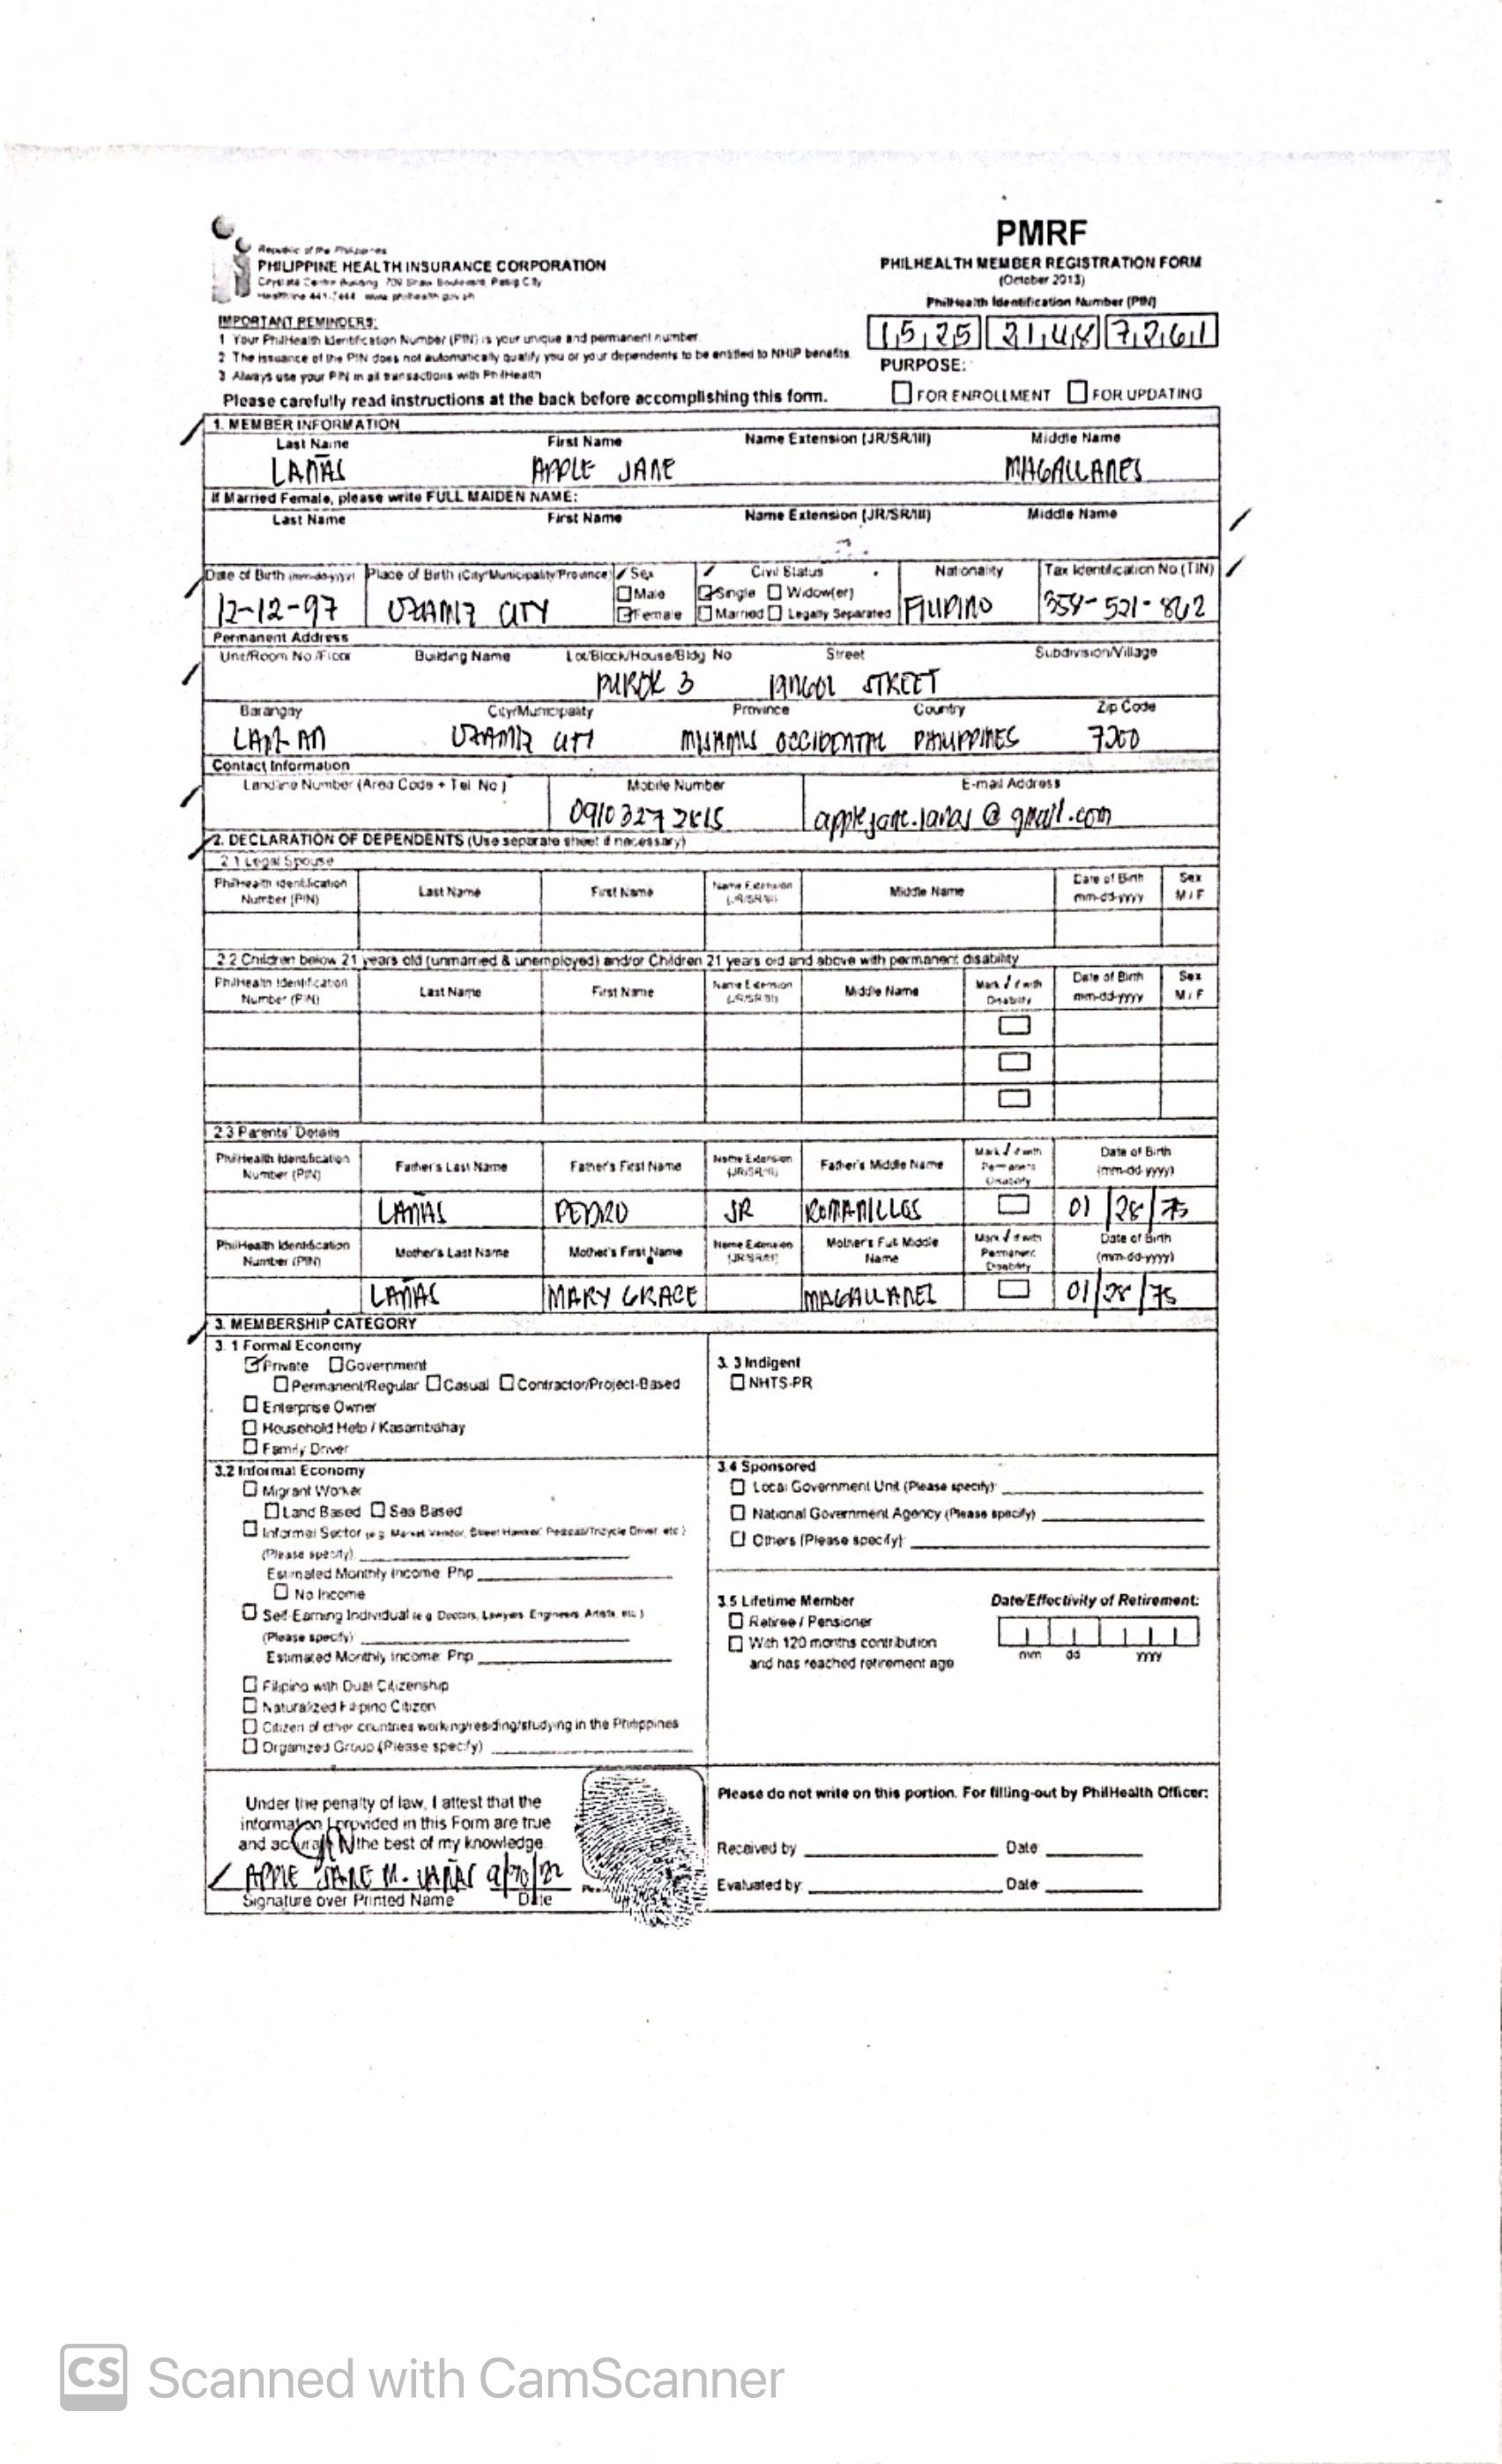 Republic of the Philippines
PHILIPPINE HEALTH INSURANCE CORPORATION
Citystate Centre Building 709 Shaw Boulevard, Pasig City
Healthline 441-7444 www.philhealth.gov.ph
PMRF
PHILHEALTH MEMBER REGISTRATION FORM
(October 2013)
PhilHealth Identification Number (PIN)
1525 2148 7261
IMPORTANT REMINDERS:
1 Your PhilHealth Identification Number (PIN) is your unique and permanent number.
2 The issuance of the PIN does not automatically qualify you or your dependents to be entitled to NHIP benefits
3 Always use your PIN in all transactions with PhilHealth
PURPOSE:
Please carefully read instructions at the back before accomplishing this form.
FOR ENROLLMENT FOR UPDATING
1. MEMBER INFORMATION
Last Name First Name Name Extension (JR/SR/III) Middle Name
LAÑAS APPLE JANE MAGALLANES
If Married Female, please write FULL MAIDEN NAME:
Last Name First Name Name Extension (JR/SR/III) Middle Name
Date of Birth (mm-dd-yyyy) Place of Birth (City/Municipality/Province) Sex Civil Status Nationality Tax Identification No (TIN)
Male Single Widow(er)
12-12-97 OZAMIZ CITY Female Married Legally Separated FILIPINO 358-521-862
Permanent Address
Unit/Room No/Floor Building Name Lot/Block/House/Bldg No Street Subdivision/Village
PUROK 3 STREET
Barangay City/Municipality Province Country Zip Code
OZAMIZ CITY MISAMIS OCCIDENTAL PHILIPPINES 7200
Contact Information
Landline Number (Area Code + Tel No) Mobile Number E-mail Address
0910327 applejane.lanas@gmail.com
2. DECLARATION OF DEPENDENTS (Use separate sheet if necessary)
2.1 Legal Spouse
PhilHealth Identification Number (PIN) Last Name First Name Name Extension (JR/SR/III) Middle Name Date of Birth mm-dd-yyyy Sex M/F
2.2 Children below 21 years old (unmarried & unemployed) and/or Children 21 years old and above with permanent disability
PhilHealth Identification Number (PIN) Last Name First Name Name Extension (JR/SR/III) Middle Name Mark √ if with Disability Date of Birth mm-dd-yyyy Sex M/F
2.3 Parents' Details
PhilHealth Identification Number (PIN) Father's Last Name Father's First Name Name Extension (JR/SR/III) Father's Middle Name Mark √ if with Permanent Disability Date of Birth (mm-dd-yyyy)
LAÑAS PEDRO JR ROMANILLOS 01/28/75
PhilHealth Identification Number (PIN) Mother's Last Name Mother's First Name Name Extension (JR/SR/III) Mother's Full Middle Name Mark √ if with Permanent Disability Date of Birth (mm-dd-yyyy)
LAÑAS MARY GRACE MAGALLANES 01/28/75
3. MEMBERSHIP CATEGORY
3.1 Formal Economy
Private Government
Permanent/Regular Casual Contractor/Project-Based
Enterprise Owner
Household Help / Kasambahay
Family Driver
3.3 Indigent
NHTS-PR
3.2 Informal Economy
Migrant Worker
Land Based Sea Based
Informal Sector (e.g. Market Vendor, Street Hawker, Pedicab/Tricycle Driver, etc.)
(Please specify)
Estimated Monthly Income: Php
No Income
Self-Earning Individual (e.g. Doctors, Lawyers, Engineers, Artists, etc.)
(Please specify)
Estimated Monthly Income: Php
Filipino with Dual Citizenship
Naturalized Filipino Citizen
Citizen of other countries working/residing/studying in the Philippines
Organized Group (Please specify)
3.4 Sponsored
Local Government Unit (Please specify)
National Government Agency (Please specify)
Others (Please specify)
3.5 Lifetime Member Date/Effectivity of Retirement:
Retiree / Pensioner
With 120 months contribution
and has reached retirement age
mm dd yyyy
Under the penalty of law, I attest that the
information I provided in this Form are true
and accurate the best of my knowledge
APPLE JANE M. LAÑAS
Signature over Printed Name Date
Please do not write on this portion. For filling-out by PhilHealth Officer:
Received by Date
Evaluated by Date
CS Scanned with CamScanner